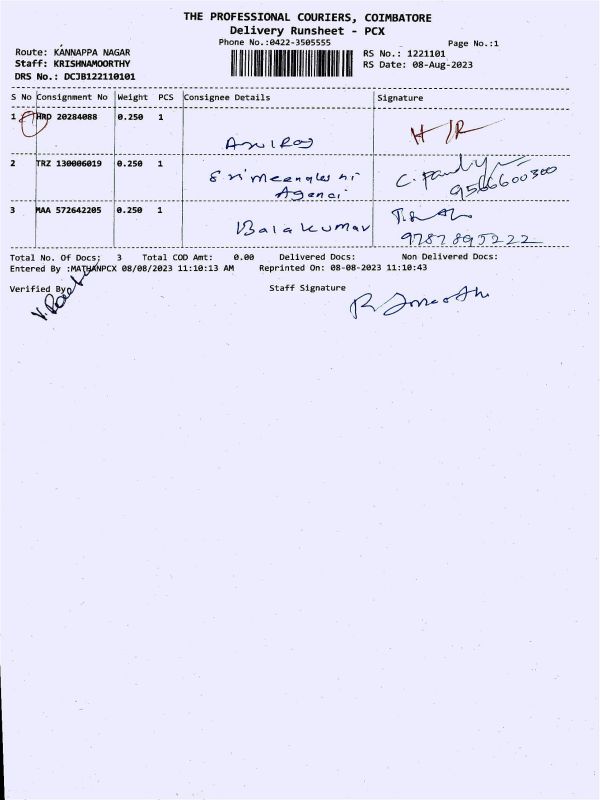 THE PROFESSIONAL COURIERS, COIMBATORE
Delivery Runsheet - PCX
Phone No.:0422-3505555 Page No.:1
Route: KANNAPPA NAGAR RS No.: 1221101
Staff: KRISHNAMOORTHY RS Date: 08-Aug-2023
DRS No.: DCJB122110101
S No Consignment No Weight PCS Consignee Details Signature
1 HRD 20284088 0.250 1
H/R
2 TRZ 130006019 0.250 1
Agenci
9566600300
3 MAA 572642205 0.250 1
Balakumar
9787895222
Total No. Of Docs: 3 Total COD Amt: 0.00 Delivered Docs: Non Delivered Docs:
Entered By :MATHANPCX 08/08/2023 11:10:13 AM Reprinted On: 08-08-2023 11:10:43
Verified By Staff Signature